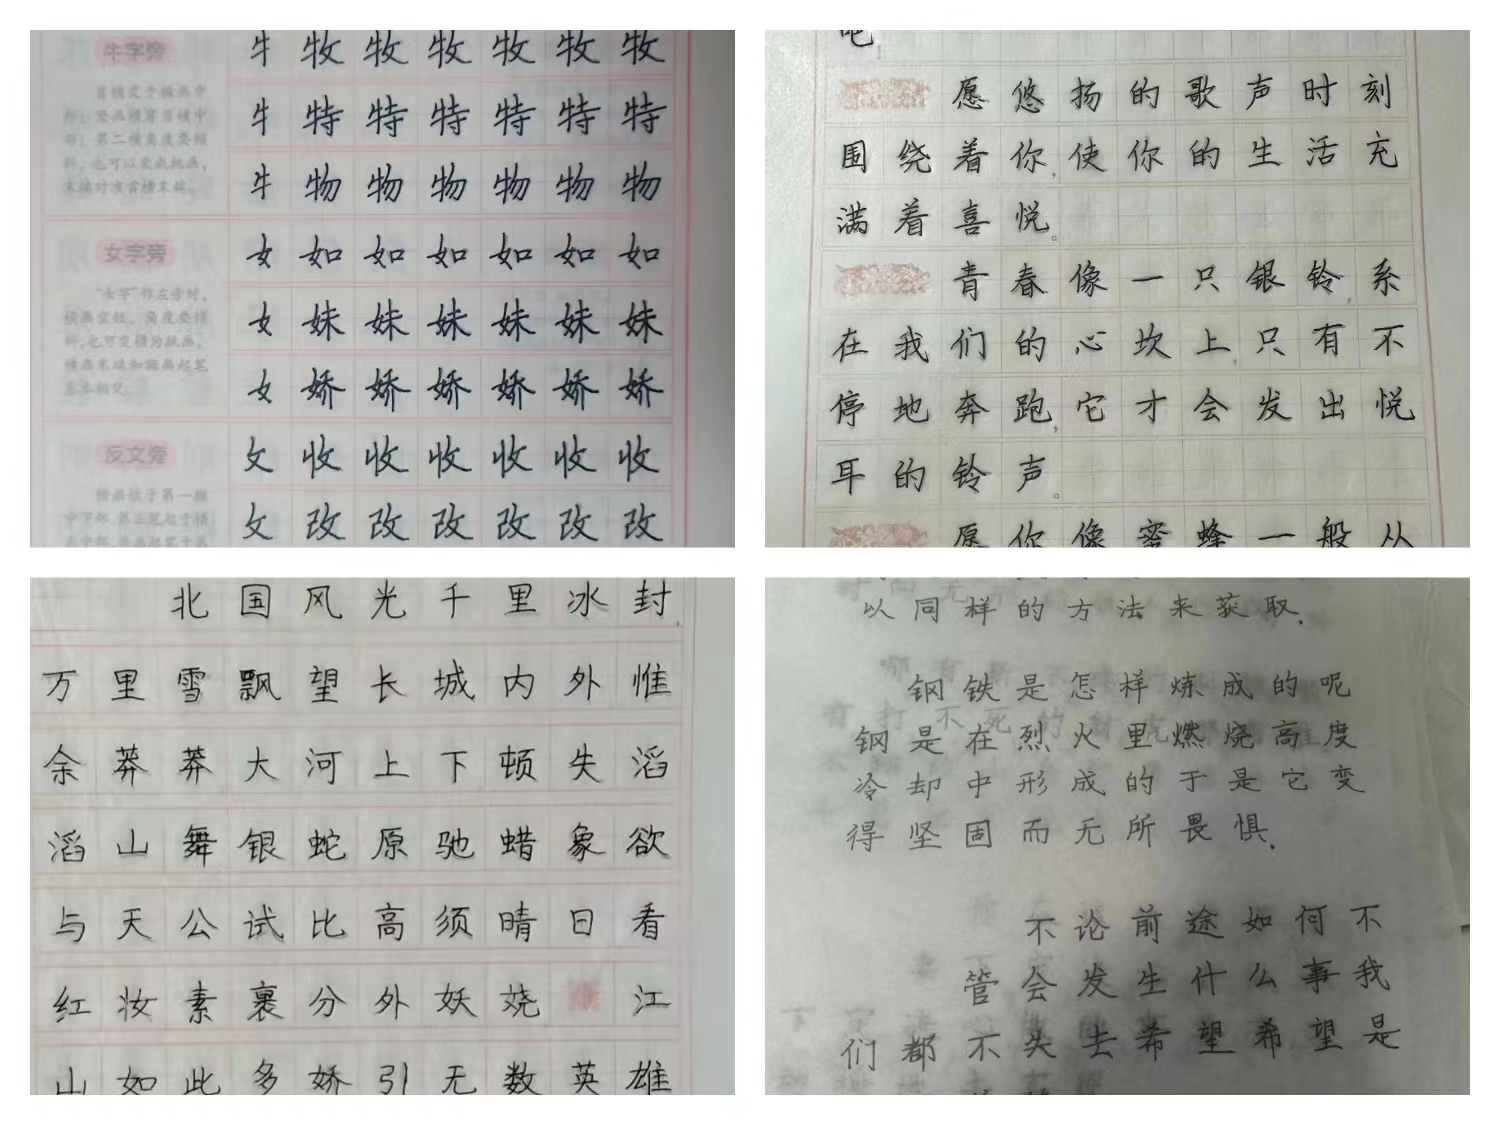 牛字旁
首横交于撇画中
部；竖画横穿首横中
部；第二横角度要倾
斜，也可以变成挑画，
末端对准首横末端。
牜 牧 牧 牧 牧 牧 牧
牜 特 特 特 特 特 特
牜 物 物 物 物 物 物
女字旁
“女字”作左旁时，
横画宜短，角度要倾
斜，也可变横为挑画。
横画末端和撇画起笔
基本相交。
女 如 如 如 如 如 如
女 妹 妹 妹 妹 妹 妹
女 娇 娇 娇 娇 娇 娇
反文旁
攵 收 收 收 收 收 收
攵 改 改 改 改 改 改
吧
愿悠扬的歌声时刻
围绕着你，使你的生活充
满着喜悦。
青春像一只银铃，系
在我们的心坎上，只有不
停地奔跑，它才会发出悦
耳的铃声。
愿你像蜜蜂一般从
北国风光千里冰封，
万里雪飘望长城内外惟
余莽莽大河上下顿失滔
滔山舞银蛇原驰蜡象欲
与天公试比高须晴日看
红妆素裹分外妖娆 江
山如此多娇引无数英雄
以同样的方法来获取.
钢铁是怎样炼成的呢
钢是在烈火里燃烧高度
冷却中形成的于是它变
得坚固而无所畏惧.
不论前途如何不
管会发生什么事我
们都不失去希望希望是